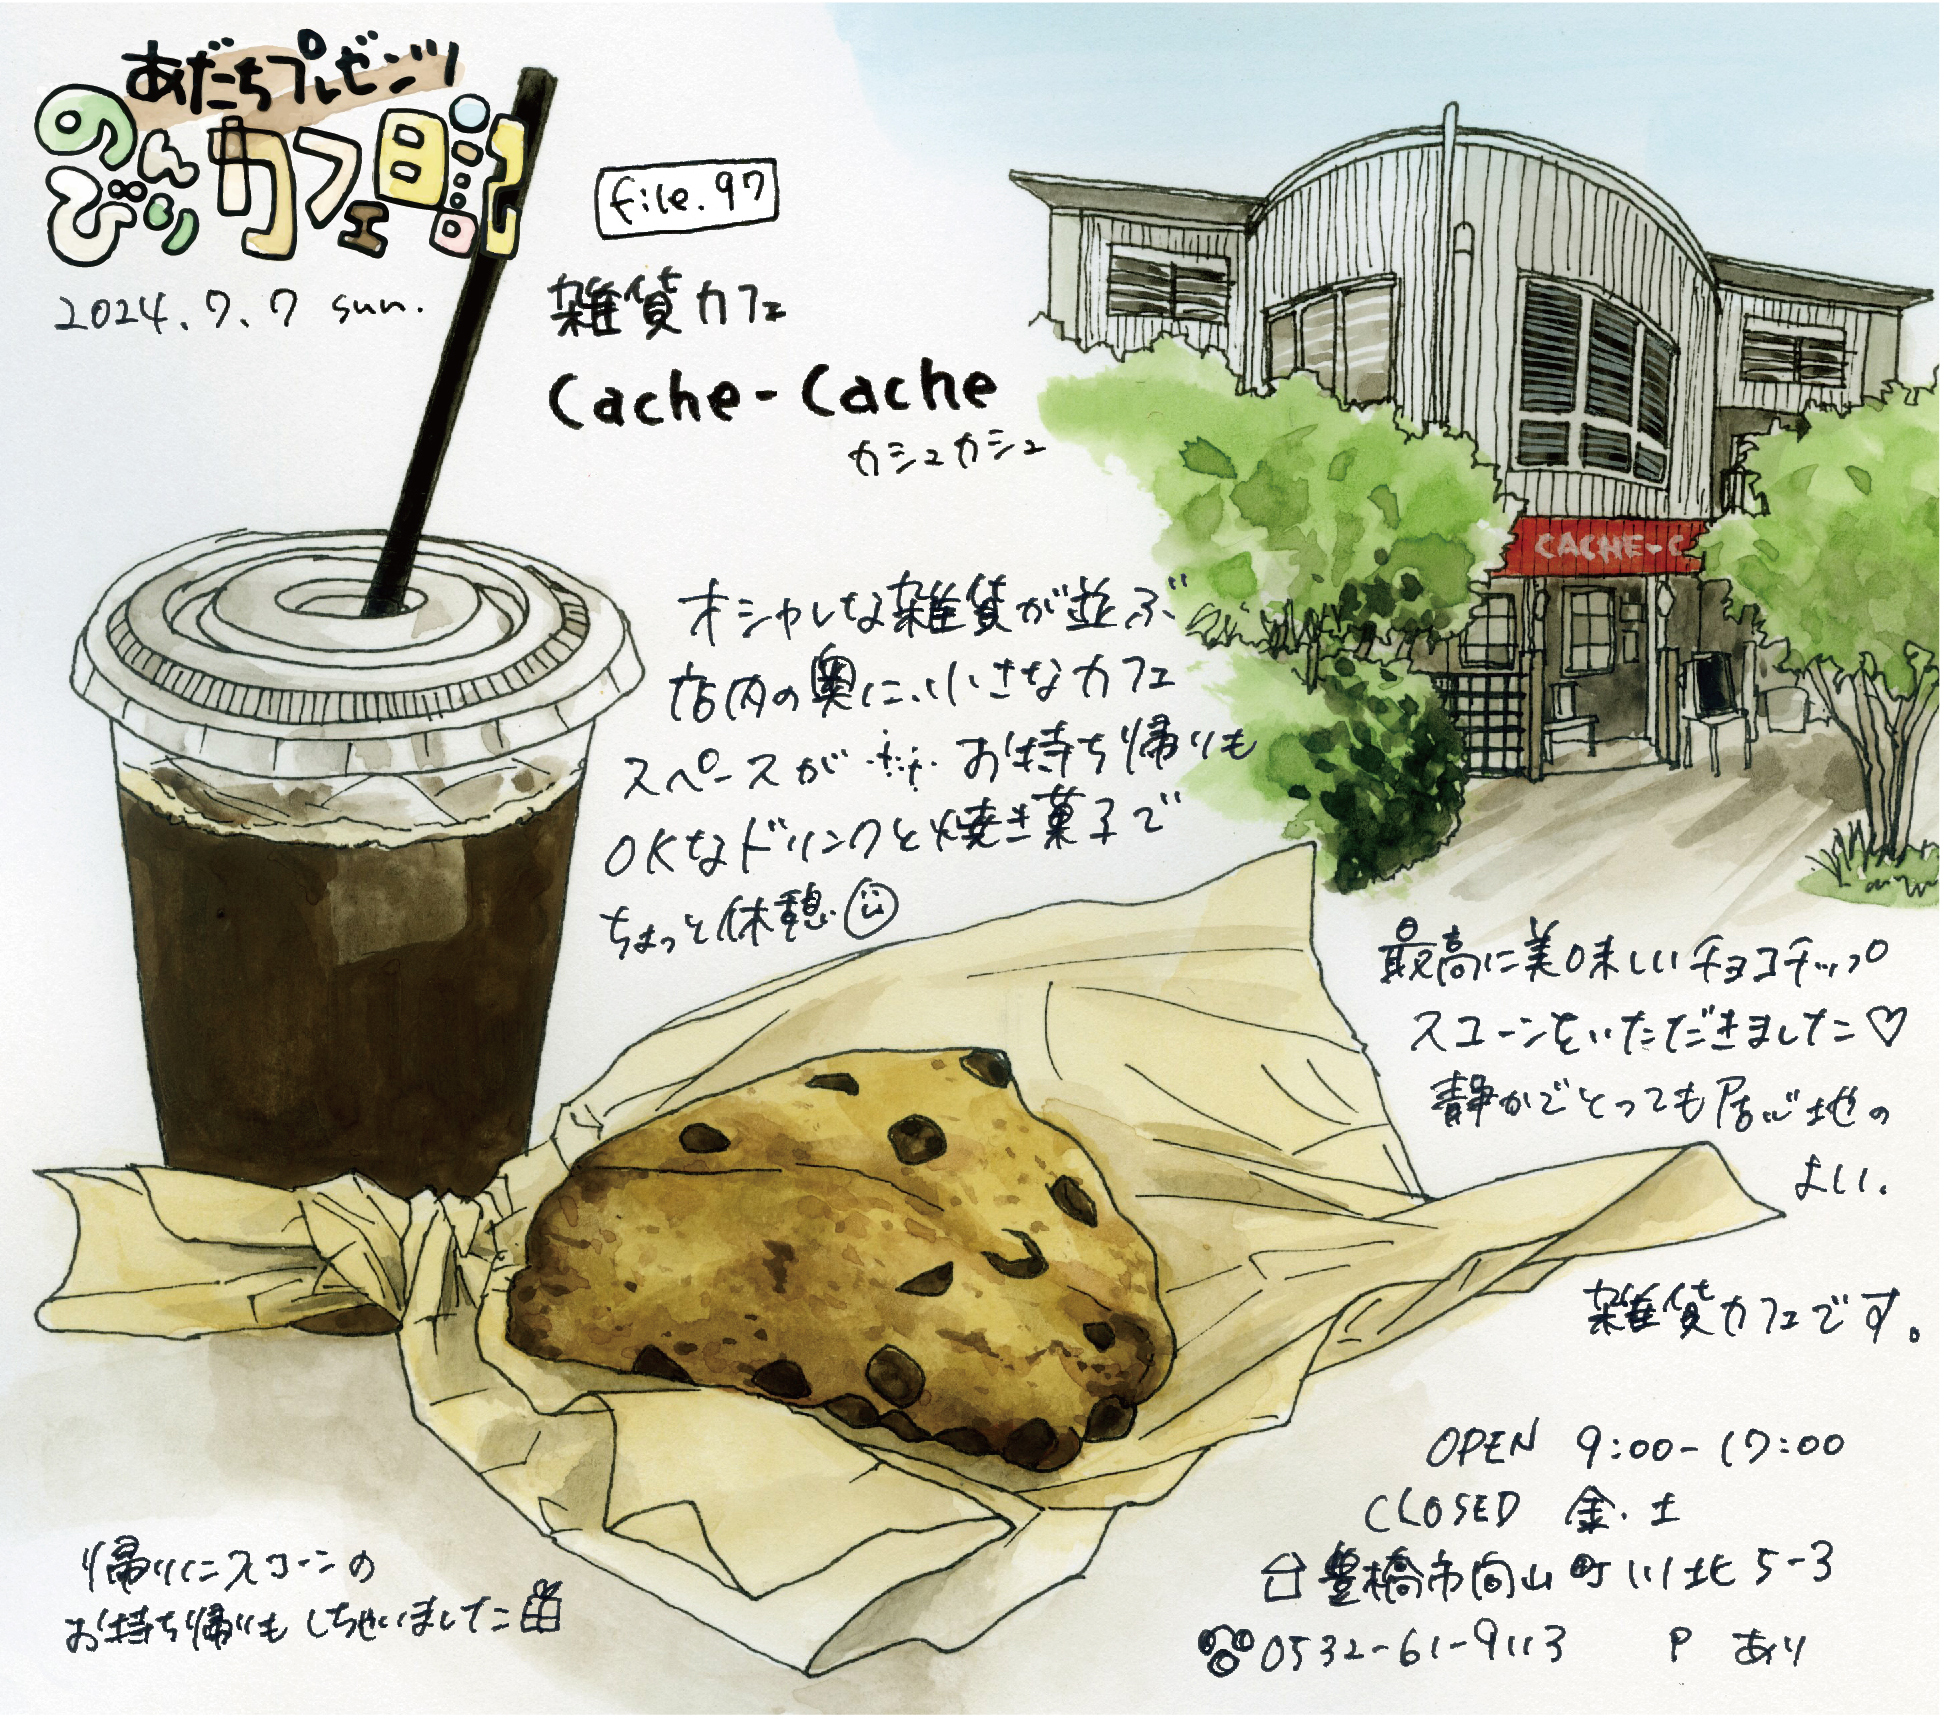 あだちプレゼンツ
のんびりカフェ日記
2024.7.7 sun.
file.97
雑貨カフェ
Cache-Cache
カシュカシュ
CACHE-C
オシャレな雑貨が並ぶ
店内の奥に、小さなカフェ
スペースが… お持ち帰りも
OKなドリンクと焼き菓子で
ちょっと休憩
最高に美味しいチョコチップ
スコーンをいただきました♡
静かでとっても居心地の
よい、
雑貨カフェです。
OPEN 9:00-17:00
CLOSED 金・土
豊橋市向山町川北5-3
☎0532-61-9113 P あり
帰りにスコーンの
お持ち帰りもしちゃいました